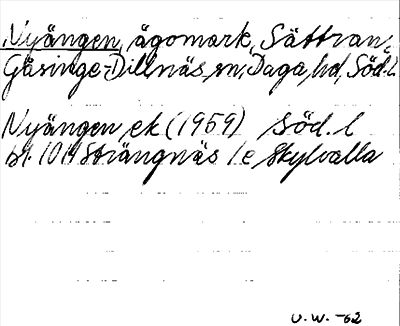 Nyängen, ägomark, Sättran,
Gåsinge-Dillnäs sn, Daga hd, Söd. l.
Nyängen ek (1959) Söd. l
bl. 10H Strängnäs 1e Skylvalla
U.W. -62